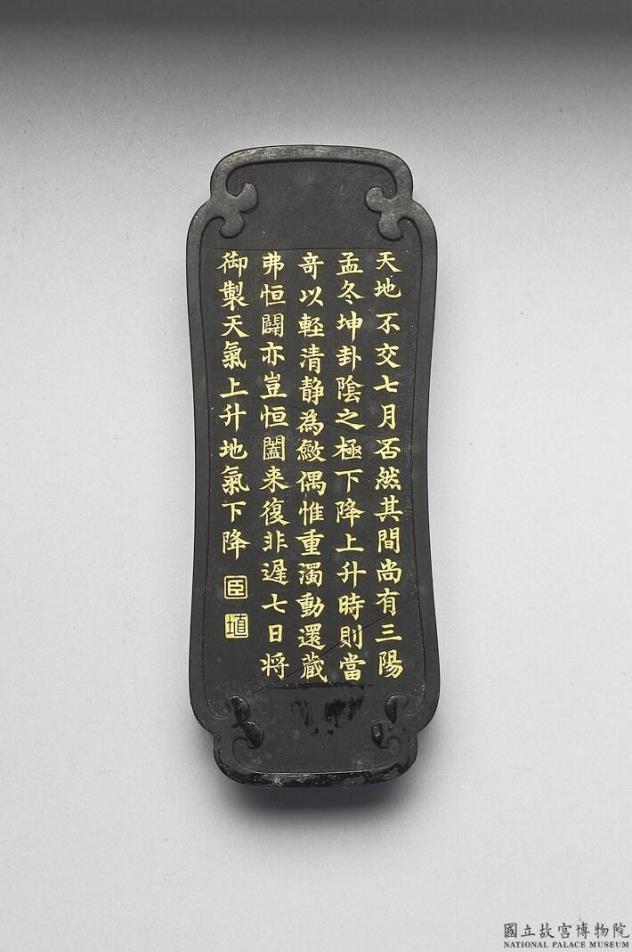 天地不交七月否然其間尚有三陽
孟冬坤卦陰之極下降上升時則當
奇以輕清靜為斂偶惟重濁動還藏
弗恒闢亦豈恒闔来復非遲七日将
御製天氣上升地氣下降
臣
埴
國立故宮博物院
NATIONAL PALACE MUSEUM